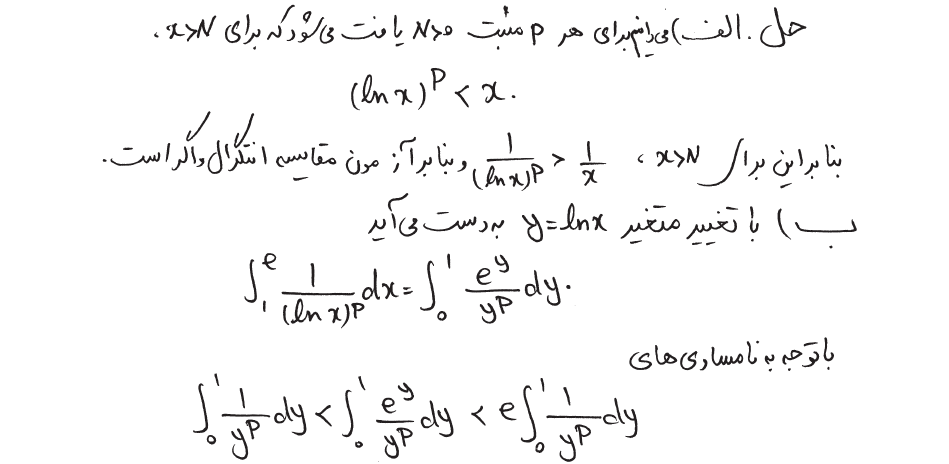 حل. الف) می‌دانیم برای هر p مثبت N>0 یافت می‌شود که برای x>N،
(ln x)^p < x.
بنابراین برای x>N، 1/(ln x)^p > 1/x و بنابر آزمون مقایسه انتگرال واگراست.
ب) با تغییر متغیر y=ln x به دست می‌آید
∫_1^e 1/(ln x)^p dx = ∫_0^1 e^y/y^p dy.
با توجه به نامساوی‌های
∫_0^1 1/y^p dy < ∫_0^1 e^y/y^p dy < e∫_0^1 1/y^p dy